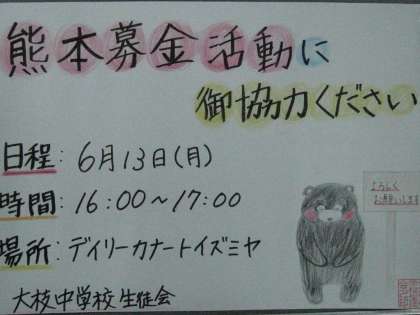 熊本募金活動に
御協力ください
日程：6月13日(月)
時間：16:00～17:00
場所：デイリーカナートイズミヤ
よろしく
お願いします
大枝中学校生徒会